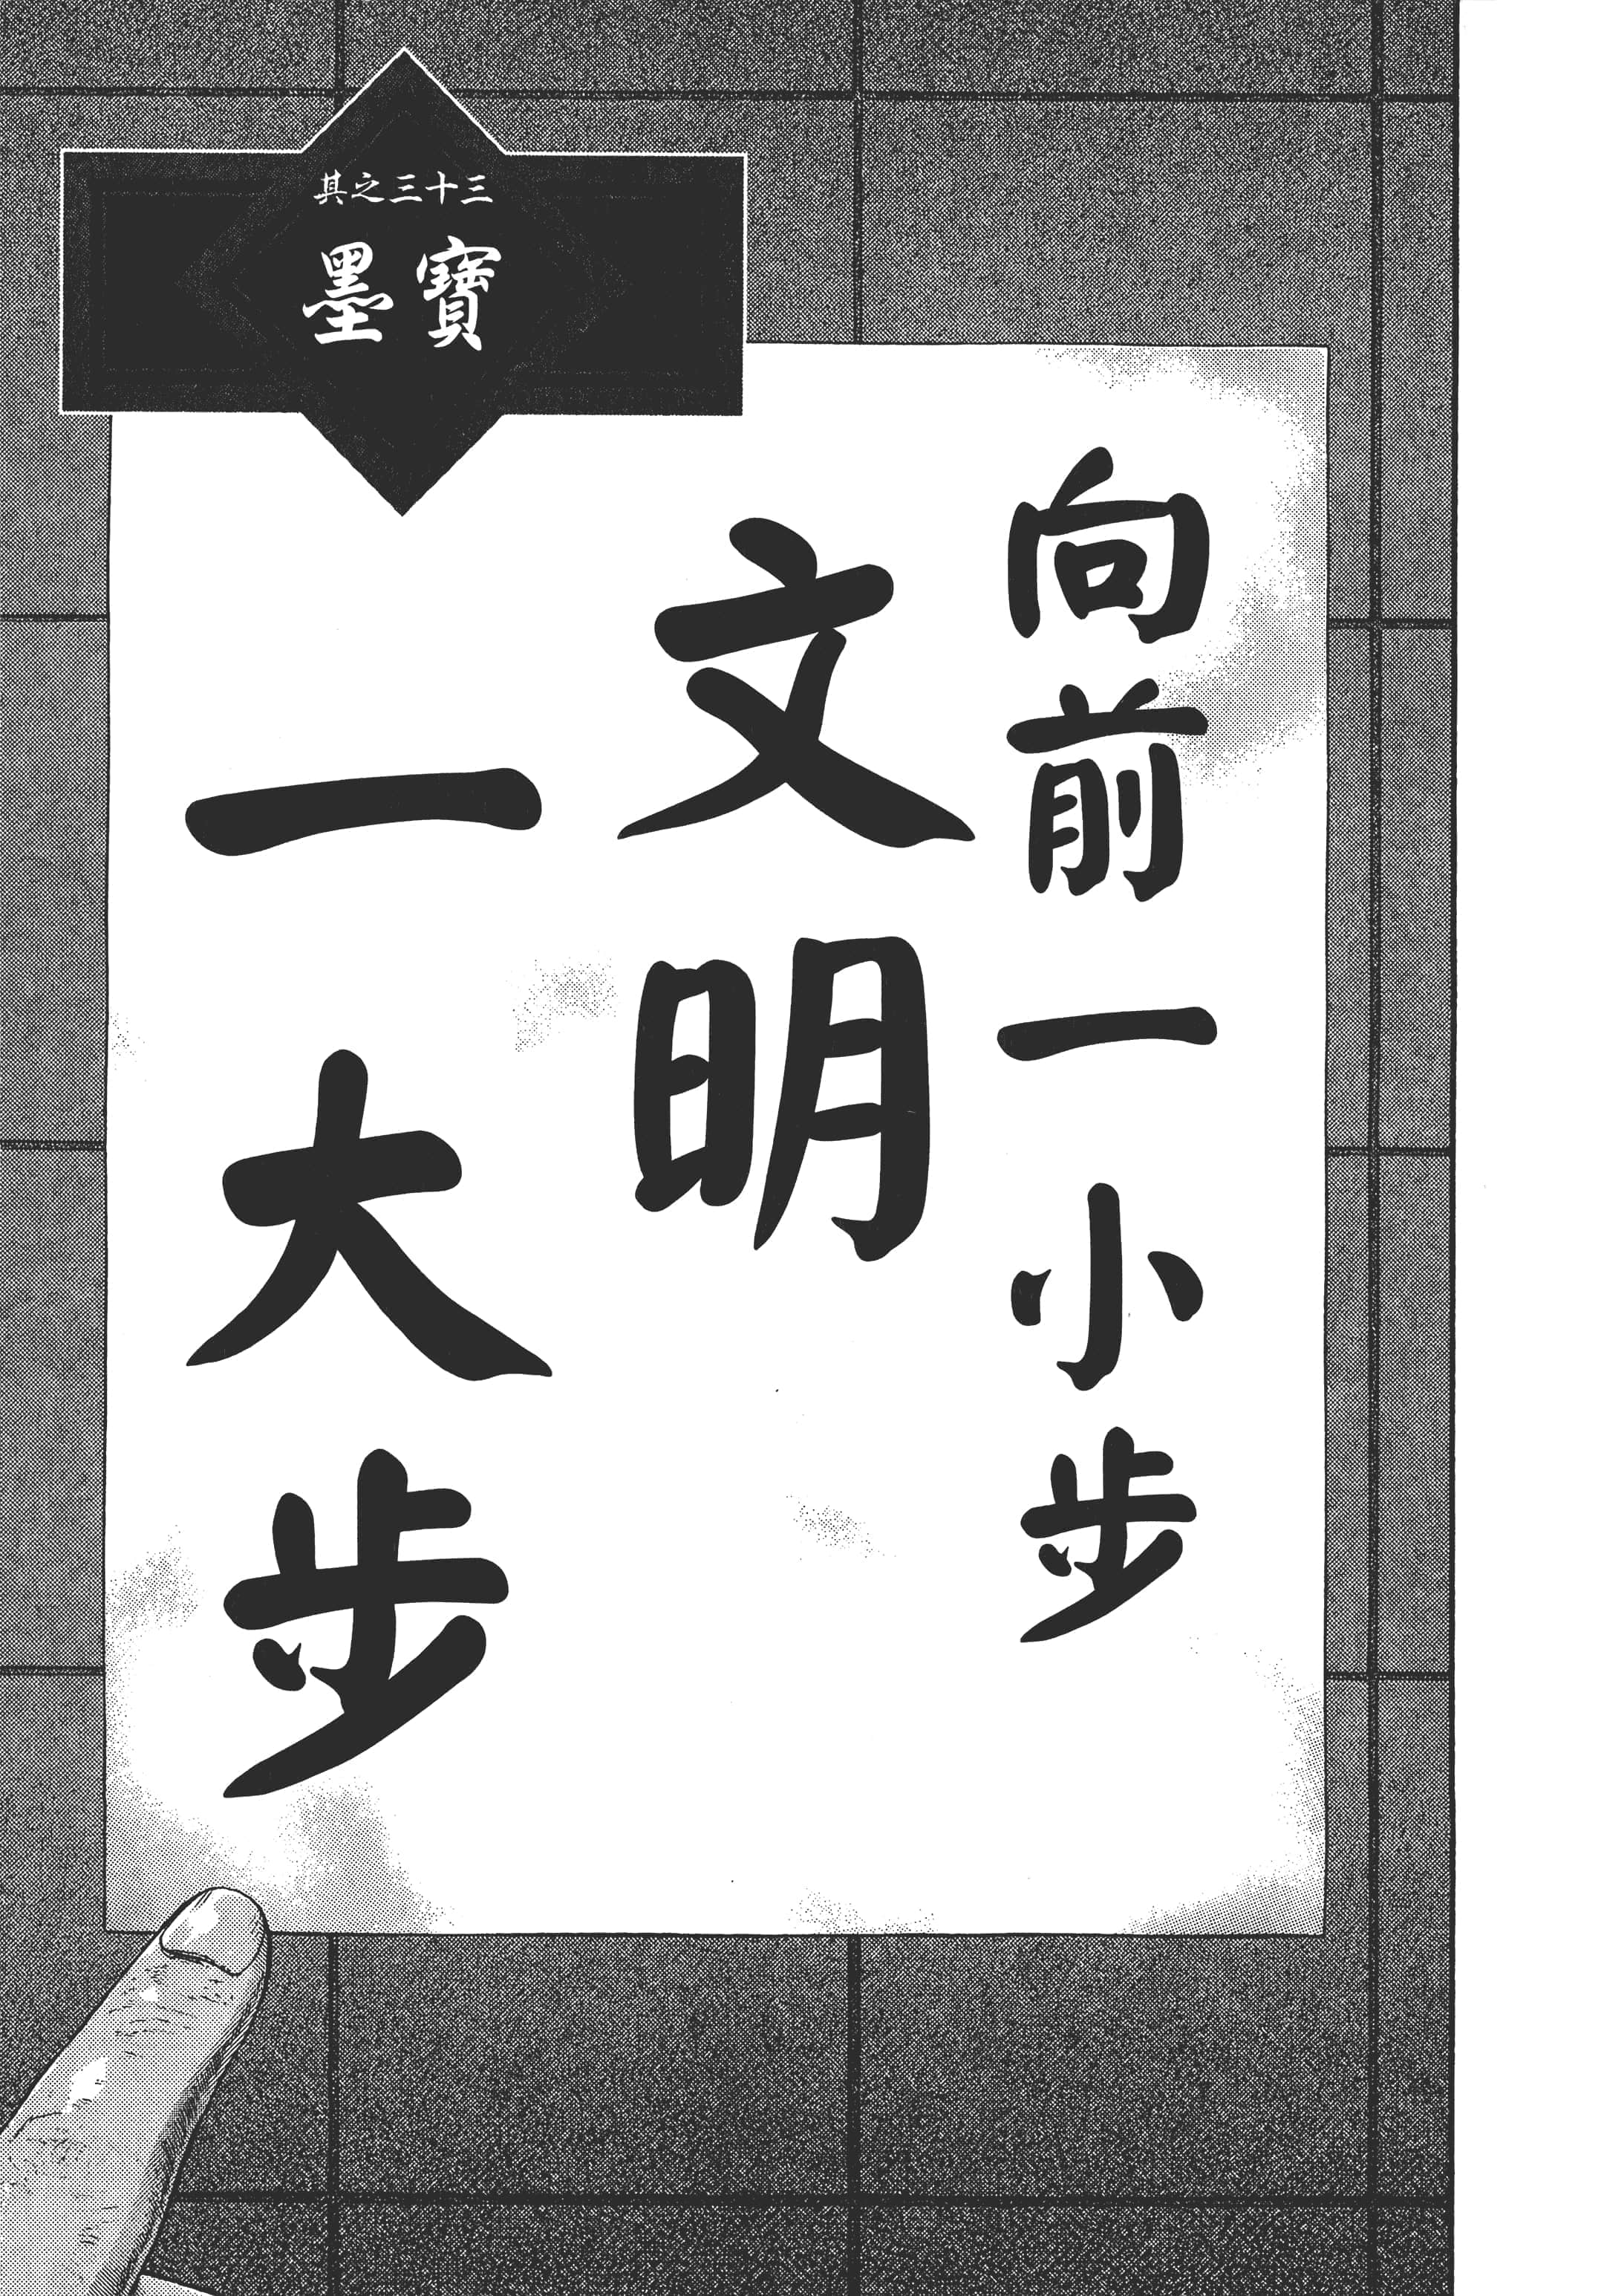 其之三十三
墨寶
向前一小步
文明
一大步